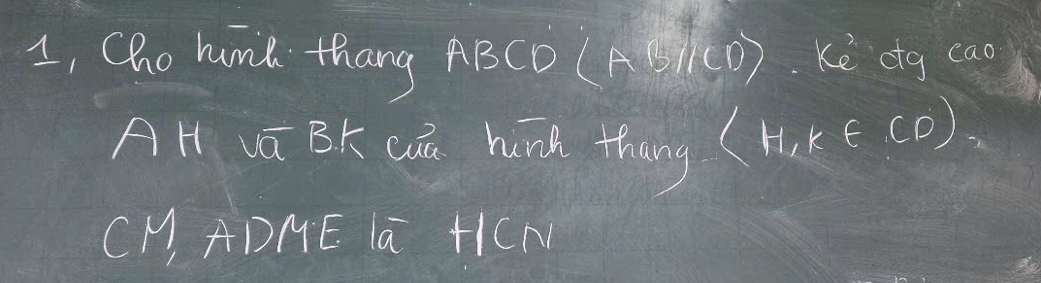 1, Cho hình thang ABCD (AB//CD). Kẻ đg cao
AH và BK của hình thang (H,K ∈ CD).
CM, ADME là HCN